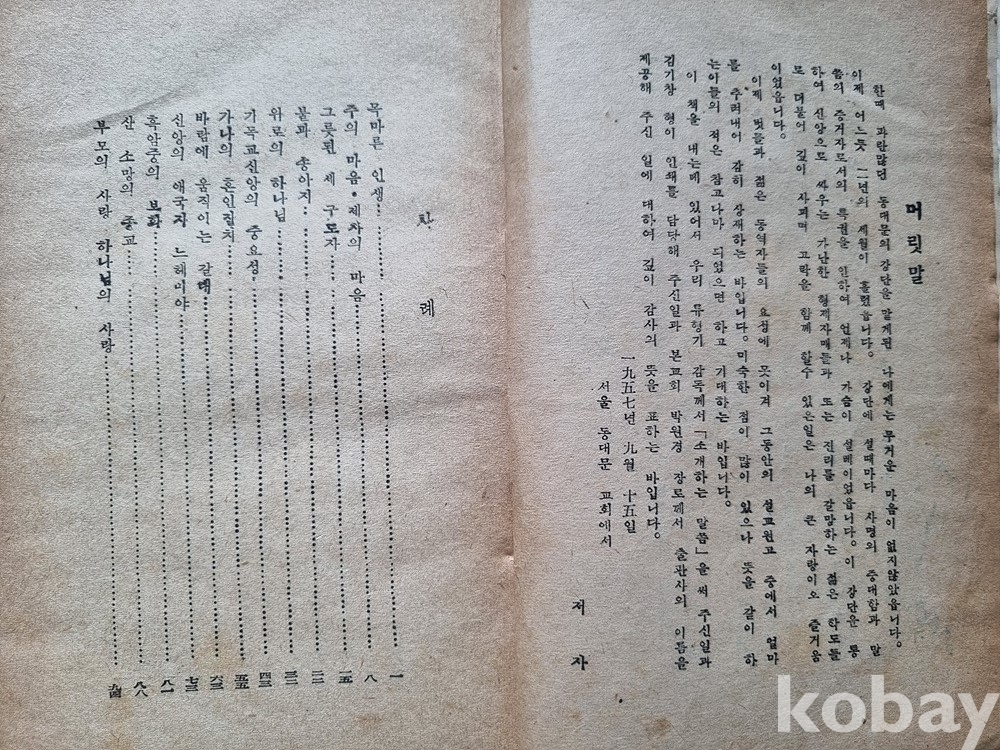 머릿말
한때 파란많던 동대문의 강단을 맡게된 나에게는 무거운 마음이 없지않았읍니다.
이제 어느듯 二년의 세월이 흘렀읍니다. 강단에 설때마다 사명의 중대함과 말
씀의 증거자로서의 특권을 인하여 언제나 가슴이 설레이었읍니다. 이 강단을 통
하여 신앙으로 싸우는 가난한 형제자매들과 또는 진리를 갈망하는 젊은 학도들
로 더불어 깊이 사괴며 고락을 함께 할수 있은일은 나의 큰 자랑이오 즐거움
이었읍니다.
이제 벗들과 젊은 동역자들의 요청에 못이겨 그동안의 설교원고 중에서 얼마
를 추려내어 감히 상재하는 바입니다. 미숙한 점이 많이 있으나 뜻을 같이 하
는이들의 적은 참고나마 되었으면 하고 기대하는 바입니다.
이 책을 내는데 있어서 우리 류형기 감독께서 「소개하는 말씀」을 써 주신일과
김기창 형이 인쇄를 담당해 주신일과 본교회 박원경 장로께서 출판사의 이름을
제공해 주신 일에 대하여 깊이 감사의 뜻을 표하는 바입니다.
一九五七년 九월 十五일
서울 동대문 교회에서
저 자
차 례
목마른 인생……一
주의 마음•제차의 마음……八
그릇된 세 구도자……一五
불과 송아지……二二
위로의 하나님……三二
기독교신앙의 중요성……四三
가나의 혼인잔치……五五
바람에 움직이는 갈대……六三
신앙의 애국자 느헤미야……七三
흑암중의 보화……八一
산 소망의 종교……八八
부모의 사랑 하나님의 사랑……九四
kobay